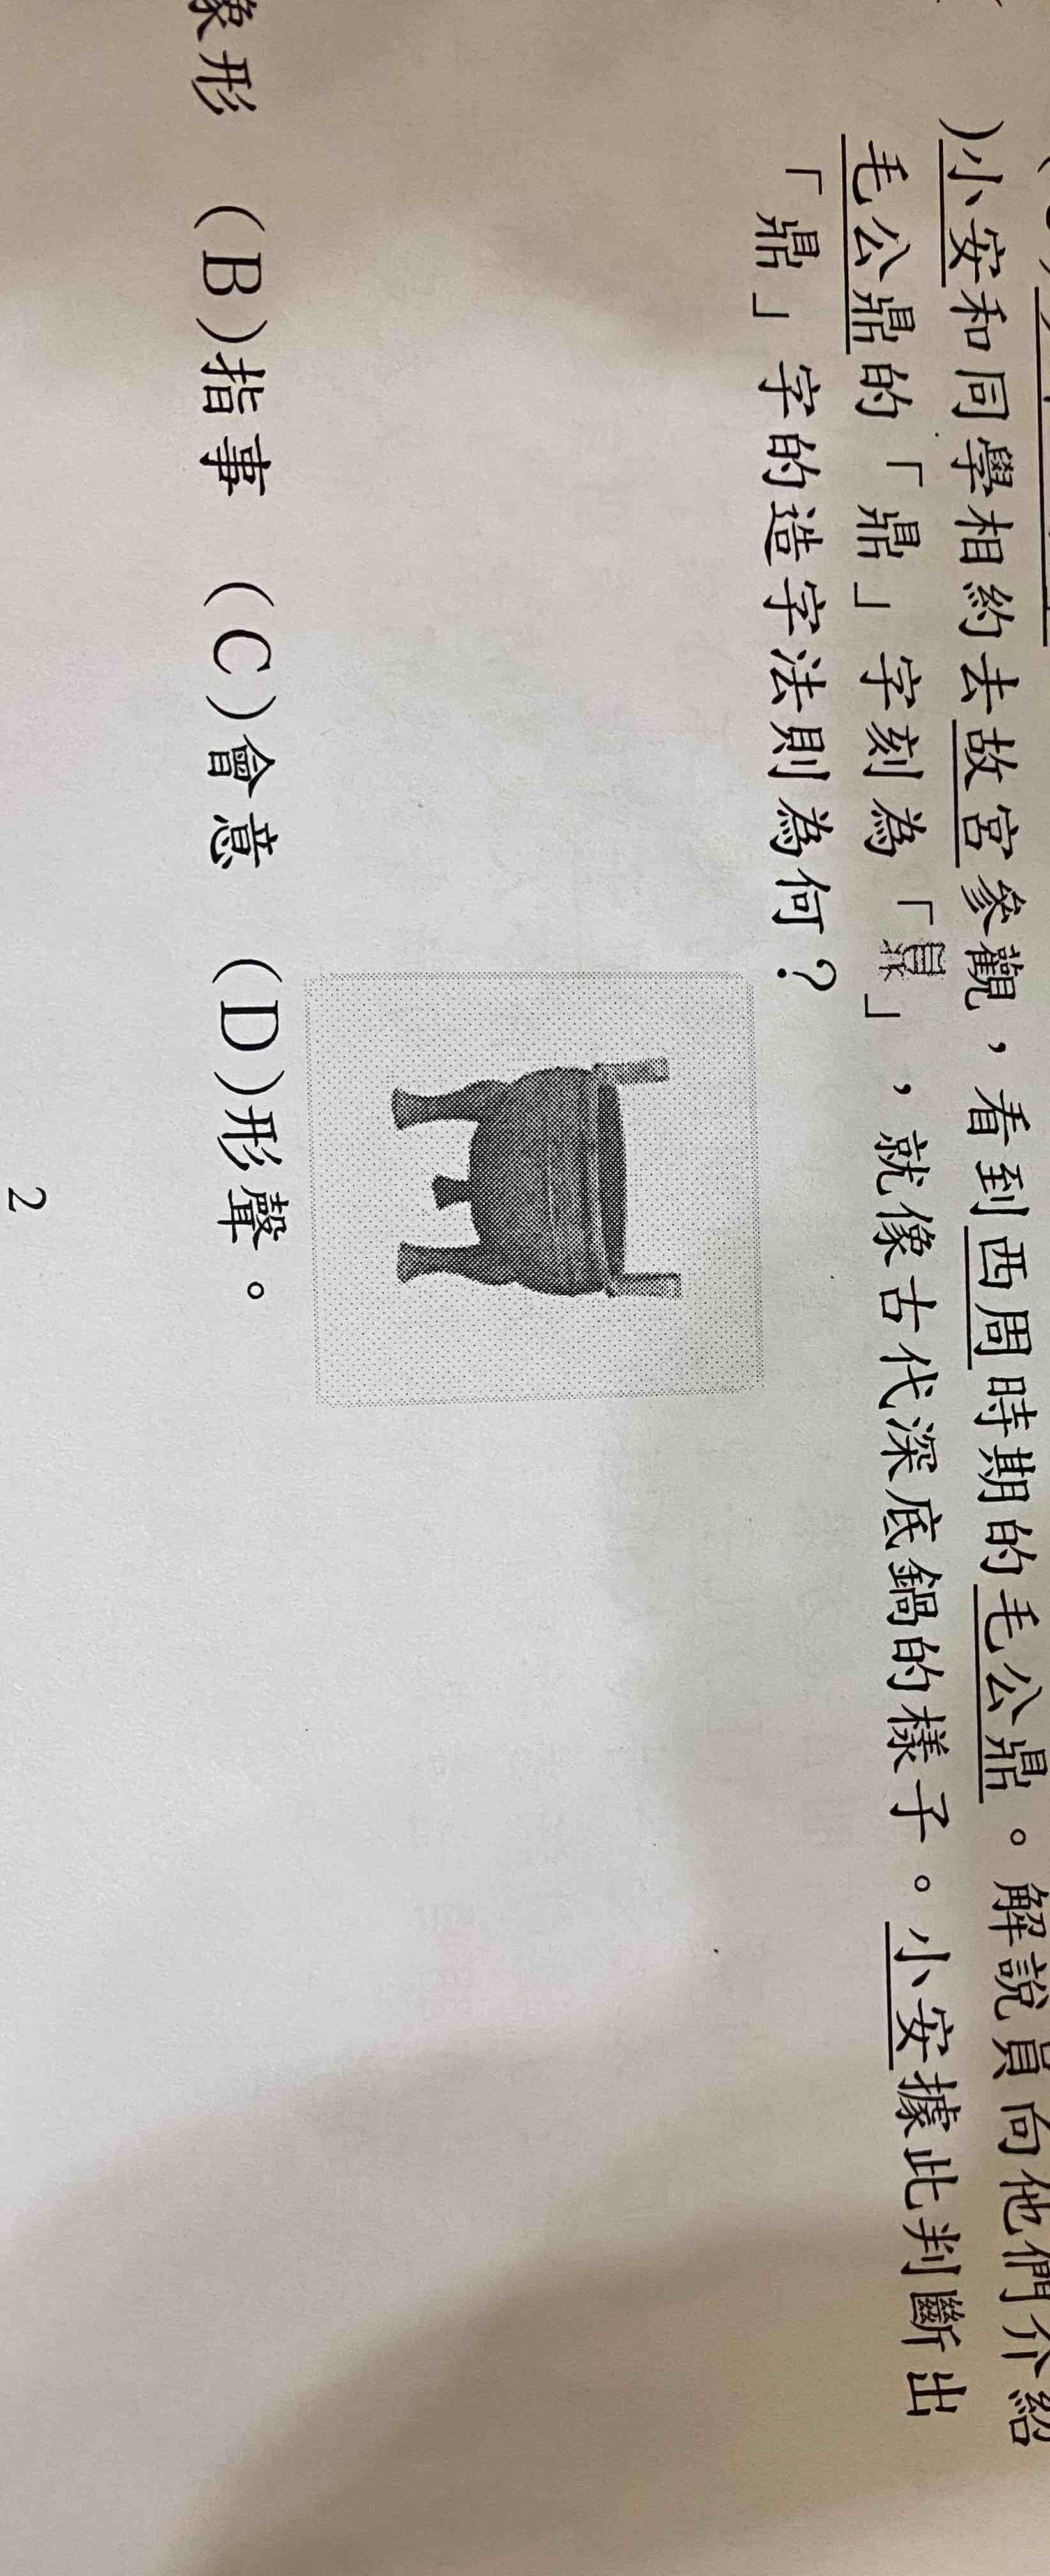 )小安和同學相約去故宮參觀,看到西周時期的毛公鼎。解說員向他們介紹
毛公鼎的「鼎」字刻為「」,就像古代深底鍋的樣子。小安據此判斷出
「鼎」字的造字法則為何?
象形 (B)指事 (C)會意 (D)形聲。
2